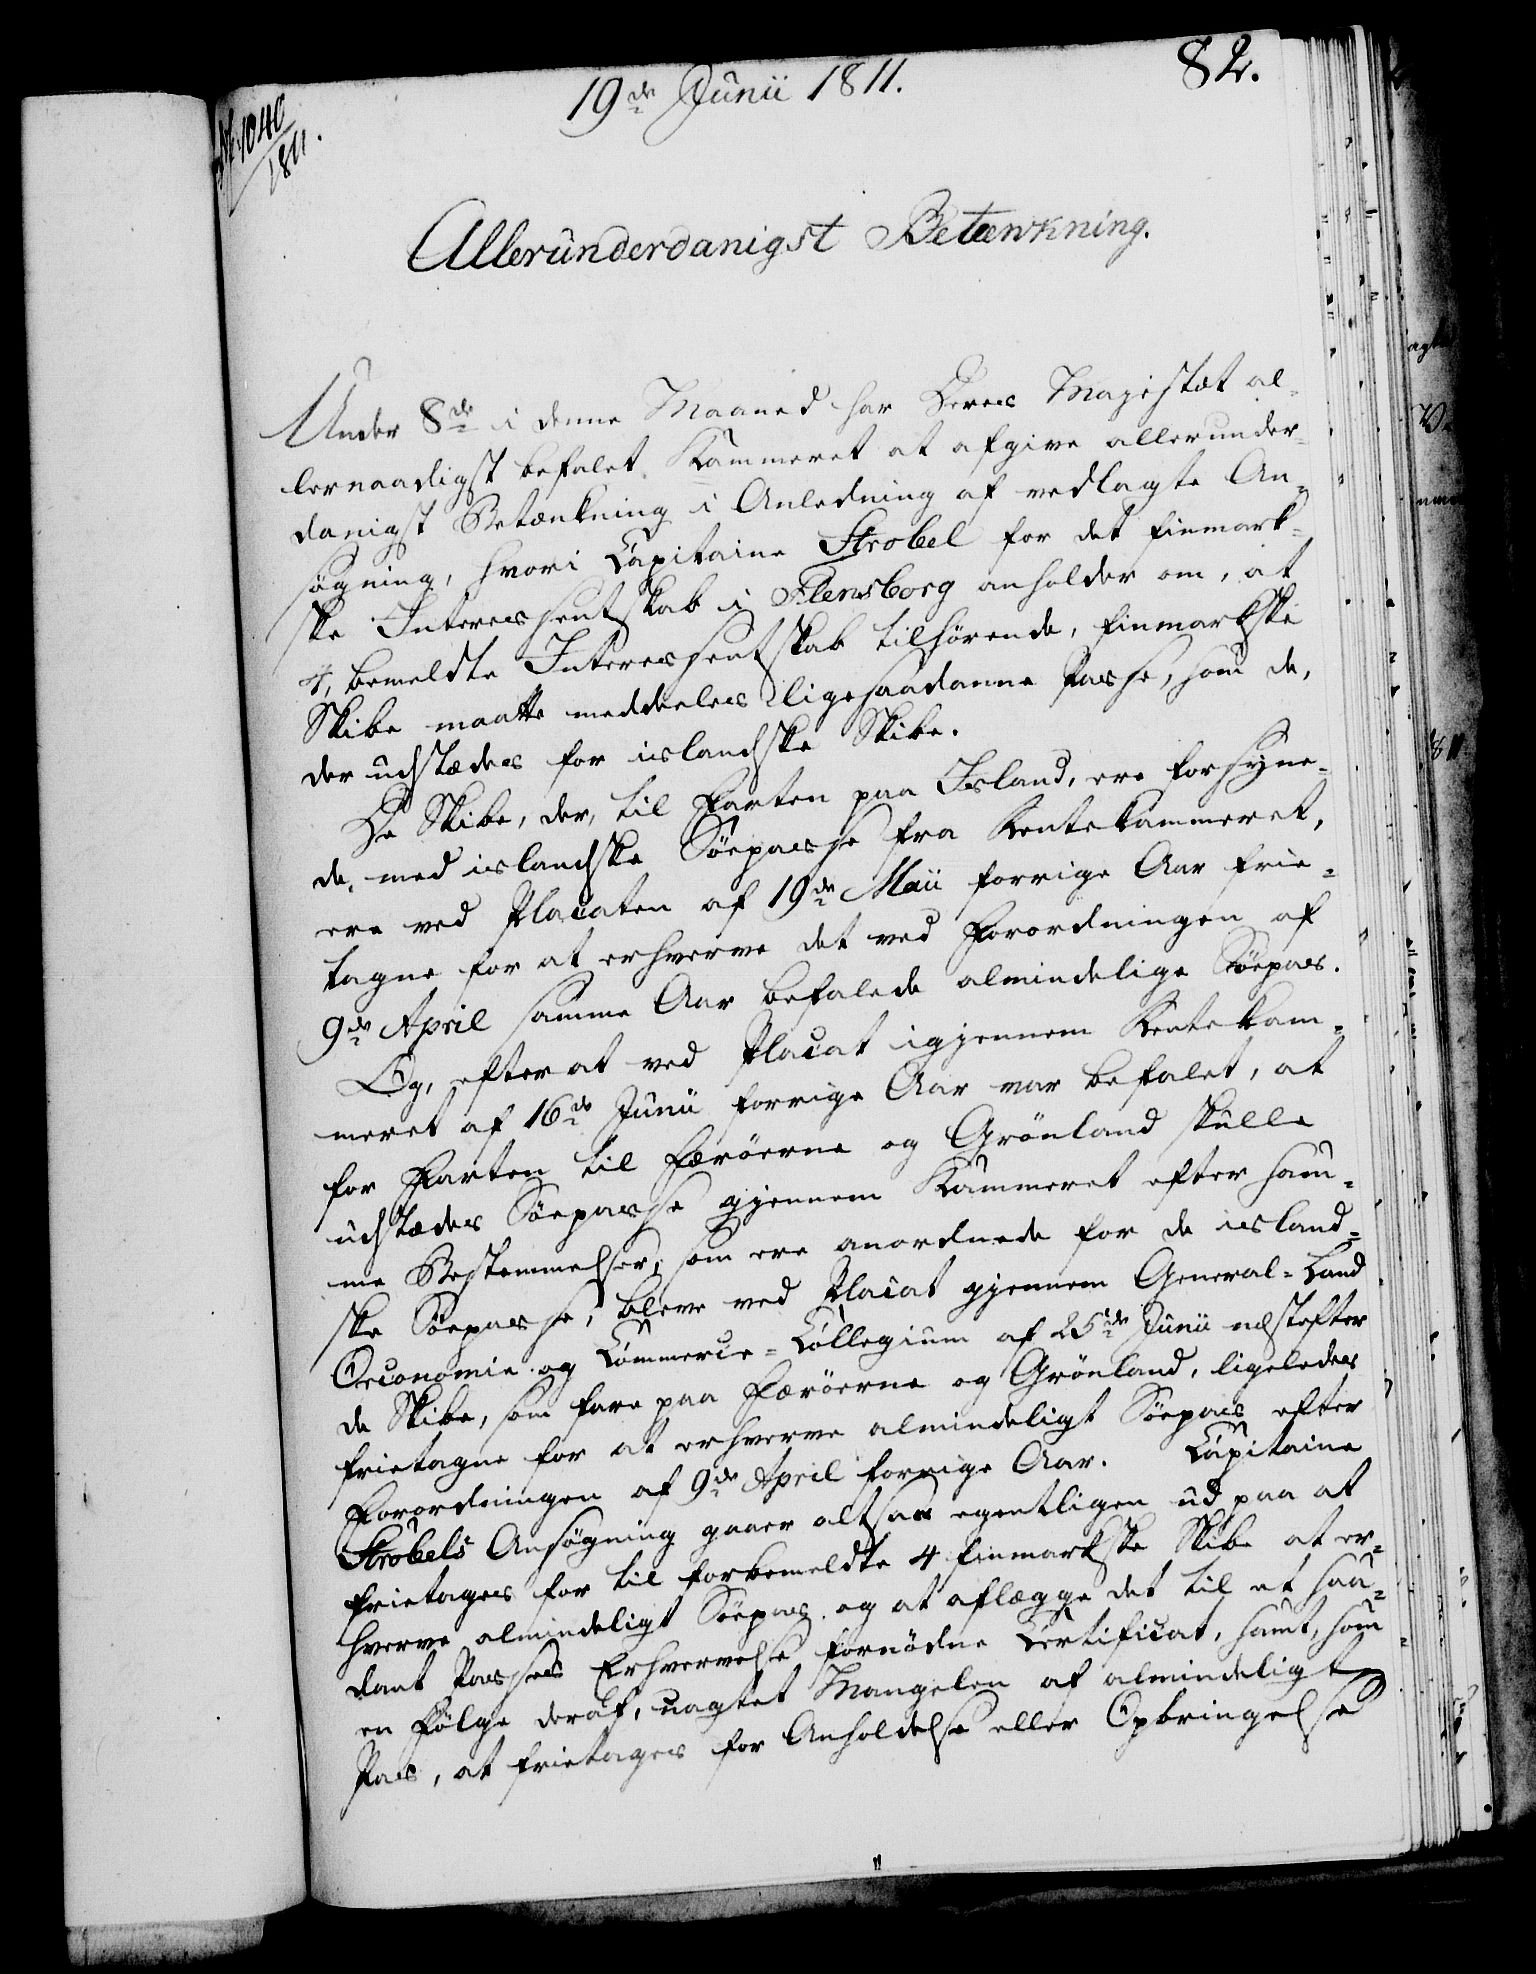 19de Junii 1811.
82.
1040
1811.
Allerunderdanigst Betænkning.
Under 8de i denne Maaned har Deres Majestæt al-
lernaadigst befalet Kammeret at afgive allerunder-
danigst Betænkning i Anledning af vedlagte An-
søgning, hvori Capitaine Strobel for det finmark-
ske Interessentskab i Flensborg anholder om, at
4, bemeldte Interessentskab tilhørende, finmarkske
Skibe maatte meddeeles ligesaadanne Passe, som de,
der udstædes for iislandske Skibe.
De Skibe, der, til Farten paa Island, ere forsyne-
de, med iislandske Söepasse fra Rentekammeret,
ere ved Placaten af 19de Maii forrige Aar frie-
tagne for at erhverve det ved Forordningen af
9de April samme Aar befalede almindelige Söepas.
Og, efter at ved Placat igjennem Rentekam-
meret af 16de Junii forrige Aar var befalet, at
for Farten til Færöerne og Grönland skulle
udstædes Söepasse gjennem Kammeret efter sam-
me Bestemmelser, som ere anordnede for de iisland-
ske Söepasse, bleve ved Placat gjennem General-Land
Oeconomie og Commerce-Collegium af 25de Junii næstefter
de Skibe, som fare paa Færöerne og Grönland, ligeledes
frietagne for at erhverve almindeligt Söepas efter
Forordningen af 9de April forrige Aar. Capitaine
Strobels Ansøgning gaaer altsaa egentligen ud paa at
frietages for til forbemeldte 4 finmarkske Skibe at er-
hverve almindeligt Söepas og at aflægge det til et saa-
dant Passes Erhvervelse fornödne Certificat, samt, som
en Fölge deraf, uagtet Mangelen af almindeligt
Pas, at frietages for Anholdelse eller Opbringelse